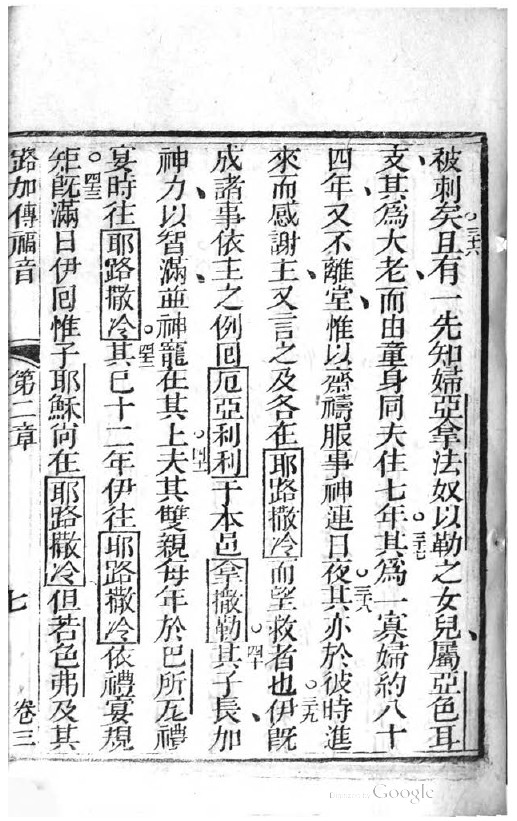 被刺矣。三六且有一先知婦亞拿法奴以勒之女兒屬亞色耳
支、其為大老而由童身同夫住七年。三七其為一寡婦約八十
四年、又不離堂、惟以齋禱服事神連日夜。三八其亦於彼時進
來而感謝主、又言之及各在耶路撒冷而望救者也。三九伊既
成諸事依主之例、回厄亞利利于本邑拿撒勒。四十其子長、加
神力以智滿、並神寵在其上。四一夫其雙親每年於巴所瓦禮
宴時往耶路撒冷。四二其已十二年、伊往耶路撒冷依禮宴規
矩。四三既滿日伊回、惟子耶穌尚在耶路撒冷、但若色弗及其
路加傳福音 第二章 七 卷三
Digitized by Google